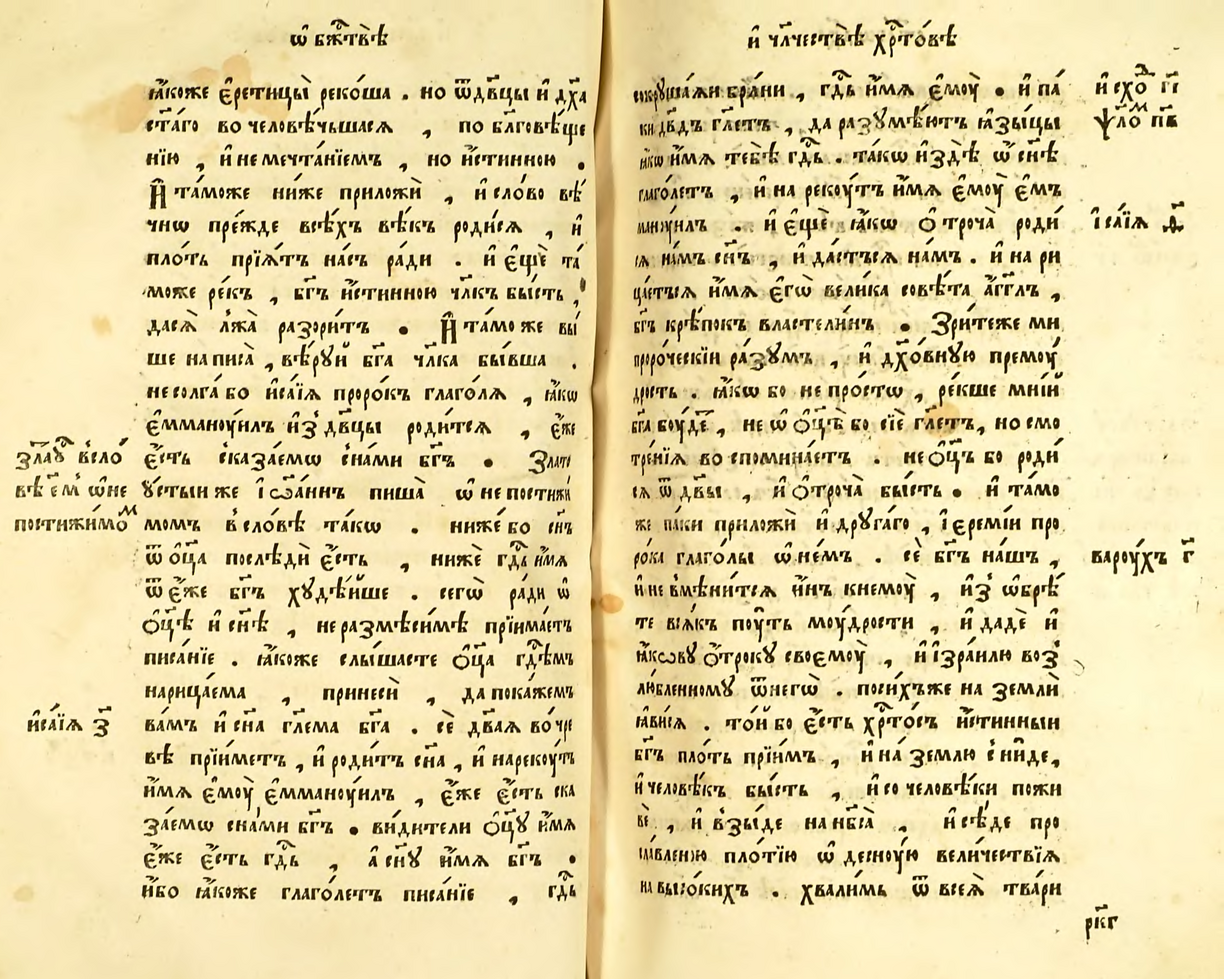 ѡ҆ бж҇твѣ
ꙗ҆́коже є҆ретицы̀ реко́ша . но ѿдв҃цы и҆ дх҃а
ст҃а́го во человѣ́чьшася , по бл҃говѣще
нїю , и҆ не мечта́нїемъ , но и҆́стинною .
И҆̀ та́може ниже приложѝ , и҆ сло́во вѣ́
чнѡ пре́жде всѣ́хъ вѣ́къ роди́ся , и҆
пло́ть прїѧ́тъ на́съ ра́ди . и҆ є҆щѐ та́
може ре́къ , бг҃ъ и҆́стинною чл҃къ бы́сть ,
дасѧ̀ лжа̀ разори́тъ . И҆̀ та́мо же вы́
ше написа̀ , вѣ́руй бг҃а чл҃ка бы́вша .
не солга́ бо и҆са́їѧ проро́къ глаго́лѧ , ꙗ҆́кѡ
є҆ммано́уилъ и҆з̾ дв҃цы роди́тсѧ , є҆́же
є҆́сть сказа́емѡ сна́ми бг҃ъ . Злато
ꙋсты́и же і҆ѡа́ннъ пиша̀ ѡ҆ непостижи́
момъ в̾сло́вѣ та́кѡ . ниже́ бо сн҃ъ
ѿ ѻ҆ц҃а послѣди є҆́сть , нижѐ гд҇ь и҆́мѧ
ѿ є҆́же бг҃ъ хꙋдѣ́йше . сегѡ̀ ра́ди ѡ҆
ѻ҆ц҃ѣ и҆ сн҃ѣ , не размѣ́симѣ прїима́етъ
писа́нїе . ꙗ҆́коже слы́шасте ѻ҆ц҃а гд҇емъ
нарица́ема , принесѝ , да пока́жемъ
ва́мъ и҆ сн҃а гл҃ема бг҃а . сѐ дв҃аѧ во чре́
вѣ прїи́метъ , и҆ роди́тъ сн҃а , и҆ нарекоу́тъ
и҆́мѧ є҆моу̀ є҆ммано́уилъ , є҆́же є҆́сть ска
за́емѡ сна́ми бг҃ъ . ви́дители ѻ҆ц҃ꙋ и҆́мѧ
є҆́же є҆́сть гд҇ь , а҆ сн҃ꙋ и҆́мѧ бг҃ъ .
и҆́бо ꙗ҆́коже глаго́летъ писа́нїе , гд҇ь
злаꙋ҇ в̾сло́
вѣ є҆м̾ ѡ҆не
постижи́моⷨ
и҆са́їѧ з҃
и҆ чл҃чествѣ хр҇то́вѣ
сокрꙋша́ѧи бра́ни , гд҇ь и҆́мѧ є҆моу̀ . и҆ па́
ки дв҃дъ гл҃етъ , да разꙋмѣ́ютъ ꙗ҆зы́цы
ꙗ҆́кѡ и҆́мѧ тебѣ̀ гд҇ь . та́кѡ и҆ здѣ̀ ѡ҆ сн҃ѣ
глаго́летъ , и҆ на рекоу́тъ и҆́мѧ є҆моу̀ є҆м̾
мано́уилъ . и҆ є҆щѐ ꙗ҆́кѡ ѻ҆троча̀ роди́
сѧ на́мъ сн҃ъ , и҆ да́стъсѧ на́мъ . и҆ на ри
ца́етъсѧ и҆́мѧ є҆гѡ̀ вели́ка совѣ́та а҆́гг҃лъ ,
бг҃ъ крѣ́покъ власте́линъ . Зри́теже ми
проро́ческїи ра́зꙋмъ , и҆ дх҃о́внꙋю премоу́
дрость . ꙗ҆́кѡ бо не про́стѡ , ре́кше мні́й
бг҃а боу́де , не ѡ҆ ѻ҆ц҃ѣ бо сїѐ гл҃етъ , но смо
тре́нїѧ во спомина́етъ . не ѻ҆ц҃ъ бо роди́
сѧ ѿ дв҃ы , и҆ ѻ҆троча̀ бы́сть . и҆ та́мо
же па́ки приложѝ и҆ дрꙋга́го , і҆еремі́и про
ро́ка глаго́лы ѡ҆ не́мъ . сѐ бг҃ъ на́шъ ,
и҆ не вмѣни́тсѧ и҆́нъ кнемоу̀ , и҆з̾ ѡ҆брѣ́
те всѧ́къ поу́ть моу́дрости , и҆ дадѐ и҆
ꙗ҆́кѡвꙋ ѻ҆́трокꙋ своемоу̀ , и҆ і҆зра́илю воз̾
лю́бленномꙋ ѿнегѡ̀ . поси́хъже на землѝ
ꙗ҆ви́сѧ . то́й бо є҆́сть хр҇то́съ и҆́стинныи
бг҃ъ пло́ть прїи́мъ , и҆ на́ землю сни́де ,
и҆ человѣ́къ бы́сть , и҆ со человѣ́ки пожи
вѐ , и҆ в̾зы́де на нб҃са̀ , и҆ сѣ́де про
сла́вленою пло́тїю ѡ҆ десноу́ю вели́чествїѧ
на высо́кихъ . хва́лимь ѿ всеѧ̀ тва́ри
и҆схо҇ г҃і
ѱло́ⷨ п҃в
і҆са́їѧ д҃
вароу́хъ г҃
рк҃г